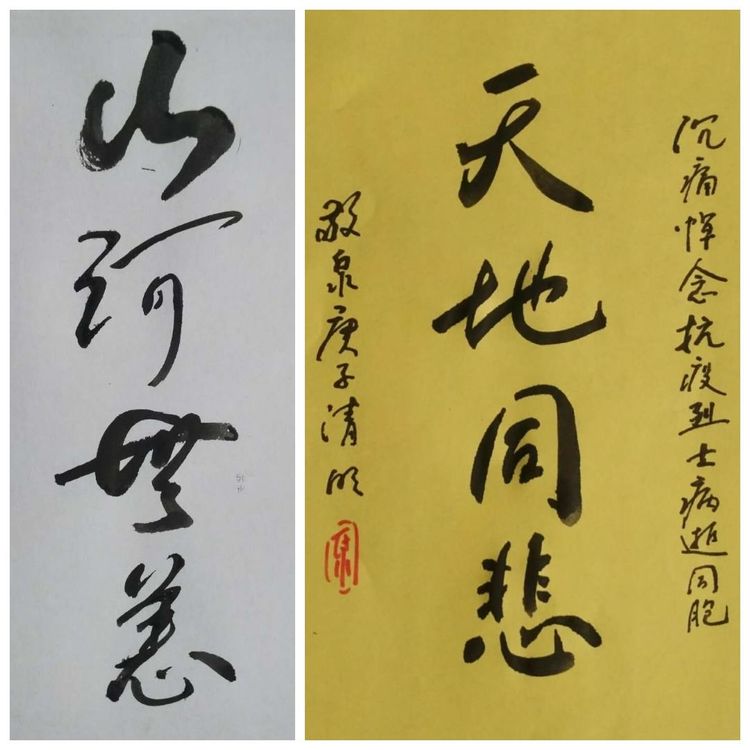 山河無恙
沉痛悼念抗疫烈士病逝同胞
天地同悲
敬泉庚子清明